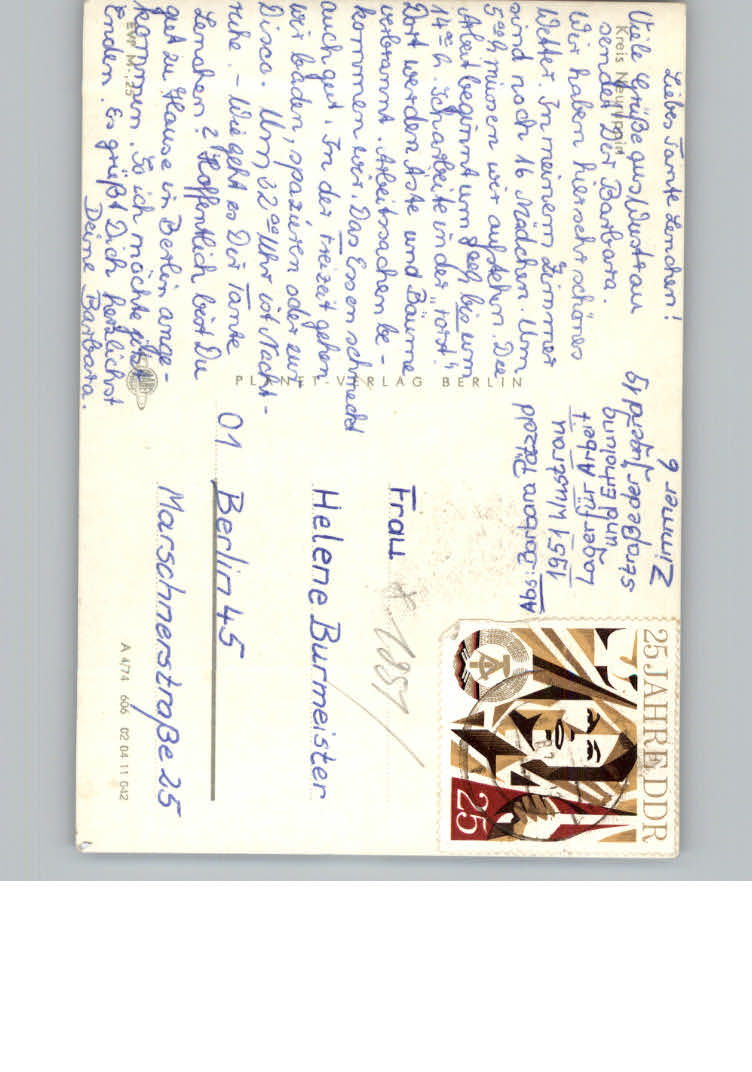 Liebe Tante Lenchen!
Viele Grüße aus Wustrau
Kreis Neuruppin
sendet Dir Barbara.
Wir haben hier sehr schönes
Wetter. In meinem Zimmer
sind noch 16 Mädchen. Um
5ººh müssen wir aufstehn. Die
Arbeit beginnt um 7ººh bis um
14ººh. Ich arbeite in der "Forst".
Dort werden Äste und Bäume
verbrannt. Arbeitssachen be-
kommen wir. Das Essen schmeckt
auch gut. In der Freizeit gehen
wir baden, spazieren oder zur
Disco. Um 22ºº Uhr ist Nacht-
ruhe. - Wie geht es Dir Tante
Lenchen? Hoffentlich bist Du
gut zu Hause in Berlin ange-
kommen. So ich möchte jetzt
enden. Es grüßt Dich herzlichst
Deine Barbara.
EVP M -,25
PLANET-VERLAG BERLIN
Abs.: Barbara
1951 Wustrau
Lager für Arbeit
und Erholung
Straße der Jugend 19
Zimmer 6
25 JAHRE DDR
25
Frau
* 1951
Helene Burmeister
01 Berlin 45
Marschnerstraße 25
A 4/74 606 02 04 11 042